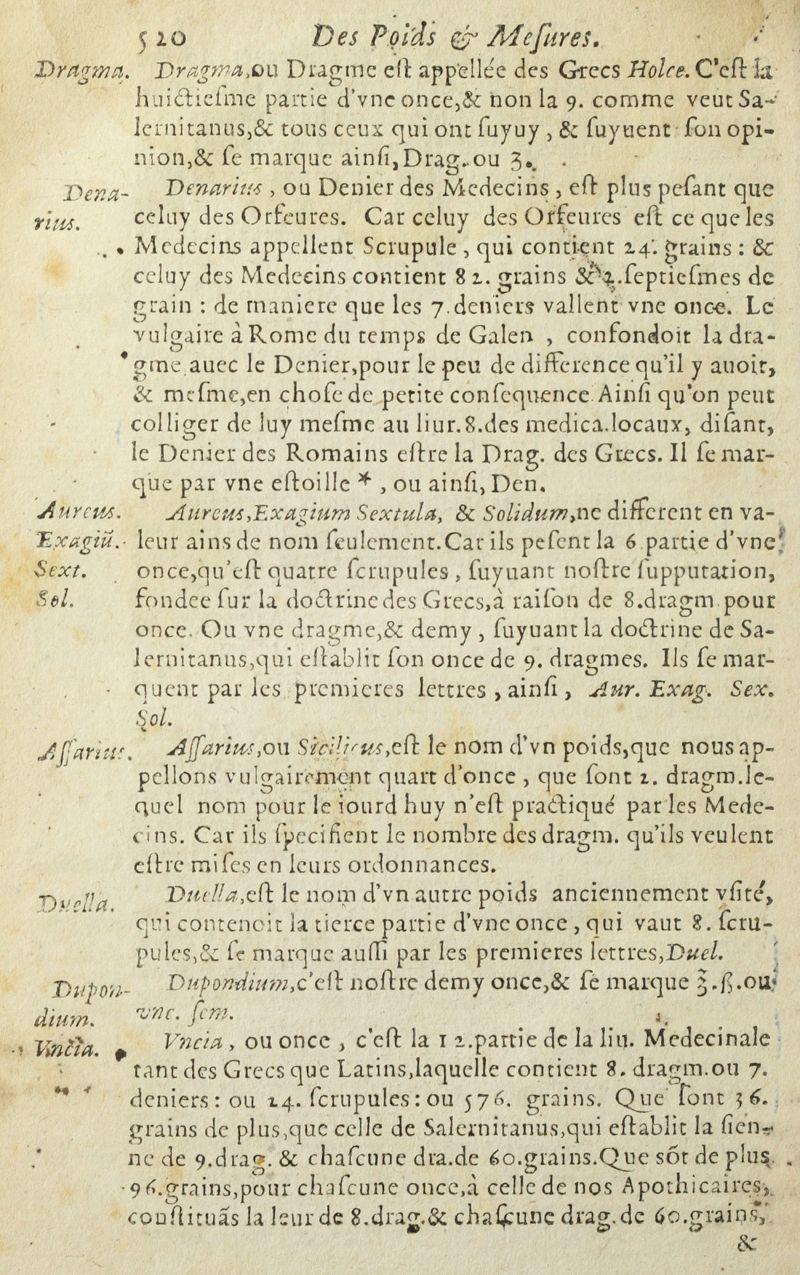 520 Des Poids & Mesures.
Dragma. Dragma,ou Dragme est appellée des Grecs Holce. C'est la
huictiesme partie d'vne once,& non la 9. comme veut Sa-
lernitanus,& tous ceux qui ont suyuy, & suyuent son opi-
nion,& se marque ainsi, Drag. ou ʒ.
Dena- Denarius, ou Denier des Medecins, est plus pesant que
rius. celuy des Orfeures. Car celuy des Orfeures est ce que les
Medecins appellent Scrupule, qui contient 24. grains : &
celuy des Medecins contient 82. grains & 2. septiesmes de
grain : de maniere que les 7. deniers vallent vne once. Le
vulgaire à Rome du temps de Galen, confondoit la dra-
gme auec le Denier,pour le peu de difference qu'il y auoit,
& mesme,en chose de petite consequence. Ainsi qu'on peut
colliger de luy mesme au liur.8.des medica.locaux, disant,
le Denier des Romains estre la Drag. des Grecs. Il se mar-
que par vne estoille *, ou ainsi, Den.
Aureus. Aureus,Exagium Sextula, & Solidum,ne different en va-
Exagiũ. leur ains de nom seulement.Car ils pesent la 6 partie d'vne
Sext. once,qu'est quatre scrupules, suyuant nostre supputation,
Sol. fondee sur la doctrine des Grecs,à raison de 8.dragm pour
once. Ou vne dragme,& demy, suyuant la doctrine de Sa-
lernitanus,qui establit son once de 9. dragmes. Ils se mar-
quent par les premieres lettres, ainsi, Aur. Exag. Sex.
Sol.
Assarius. Assarius,ou Sicilicus,est le nom d'vn poids,que nous ap-
pellons vulgairement quart d'once, que sont 2. dragm.le-
quel nom pour le iourd huy n'est practiqué par les Mede-
cins. Car ils specifient le nombre des dragm. qu'ils veulent
estre mises en leurs ordonnances.
Duella. Duella,est le nom d'vn autre poids anciennement vsité,
qui contenoit la tierce partie d'vne once, qui vaut 8. scru-
pules,& se marque aussi par les premieres lettres,Duel.
Dupon- Dupondium,c'est nostre demy once,& se marque ℥.ß.ou
dium. vnc. sem.
Vncia. Vncia, ou once, c'est la 12.partie de la liu. Medecinale
tant des Grecs que Latins,laquelle contient 8. dragm.ou 7.
deniers : ou 24. scrupules : ou 576. grains. Que sont 36.
grains de plus,que celle de Salernitanus,qui establit la sien-
ne de 9.drag. & chascune dra.de 60.grains.Que sõt de plus
96.grains,pour chascune once,à celle de nos Apothicaires,
constituãs la leur de 8.drag.& chascune drag. de 60.grains,
&